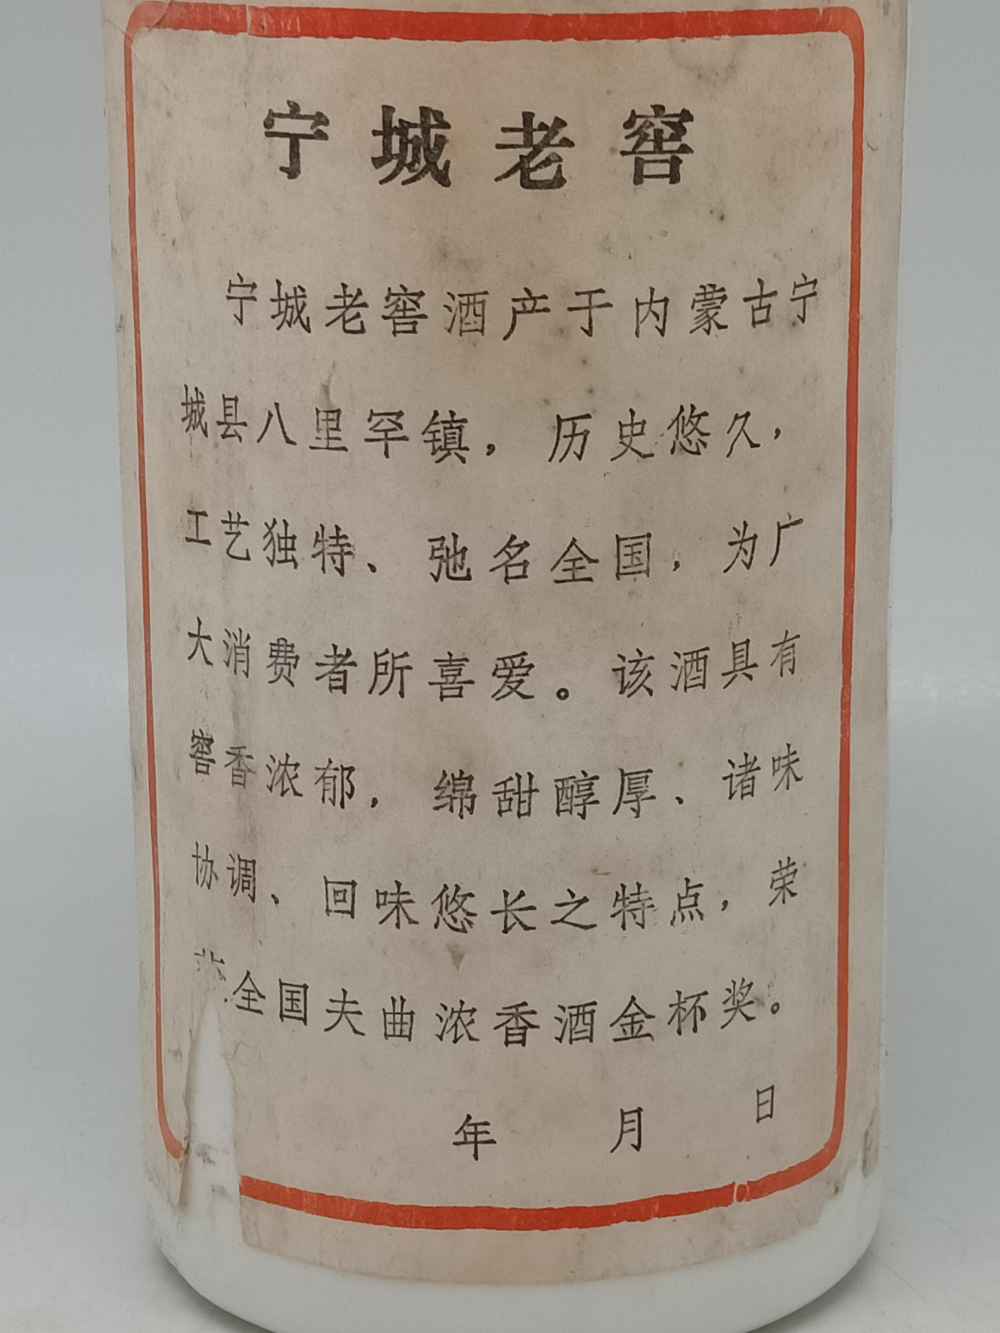 宁城老窖
宁城老窖酒产于内蒙古宁
城县八里罕镇，历史悠久，
工艺独特、弛名全国，为广
大消费者所喜爱。该酒具有
窖香浓郁，绵甜醇厚、诸味
协调、回味悠长之特点，荣
全国夫曲浓香酒金杯奖。
年 月 日